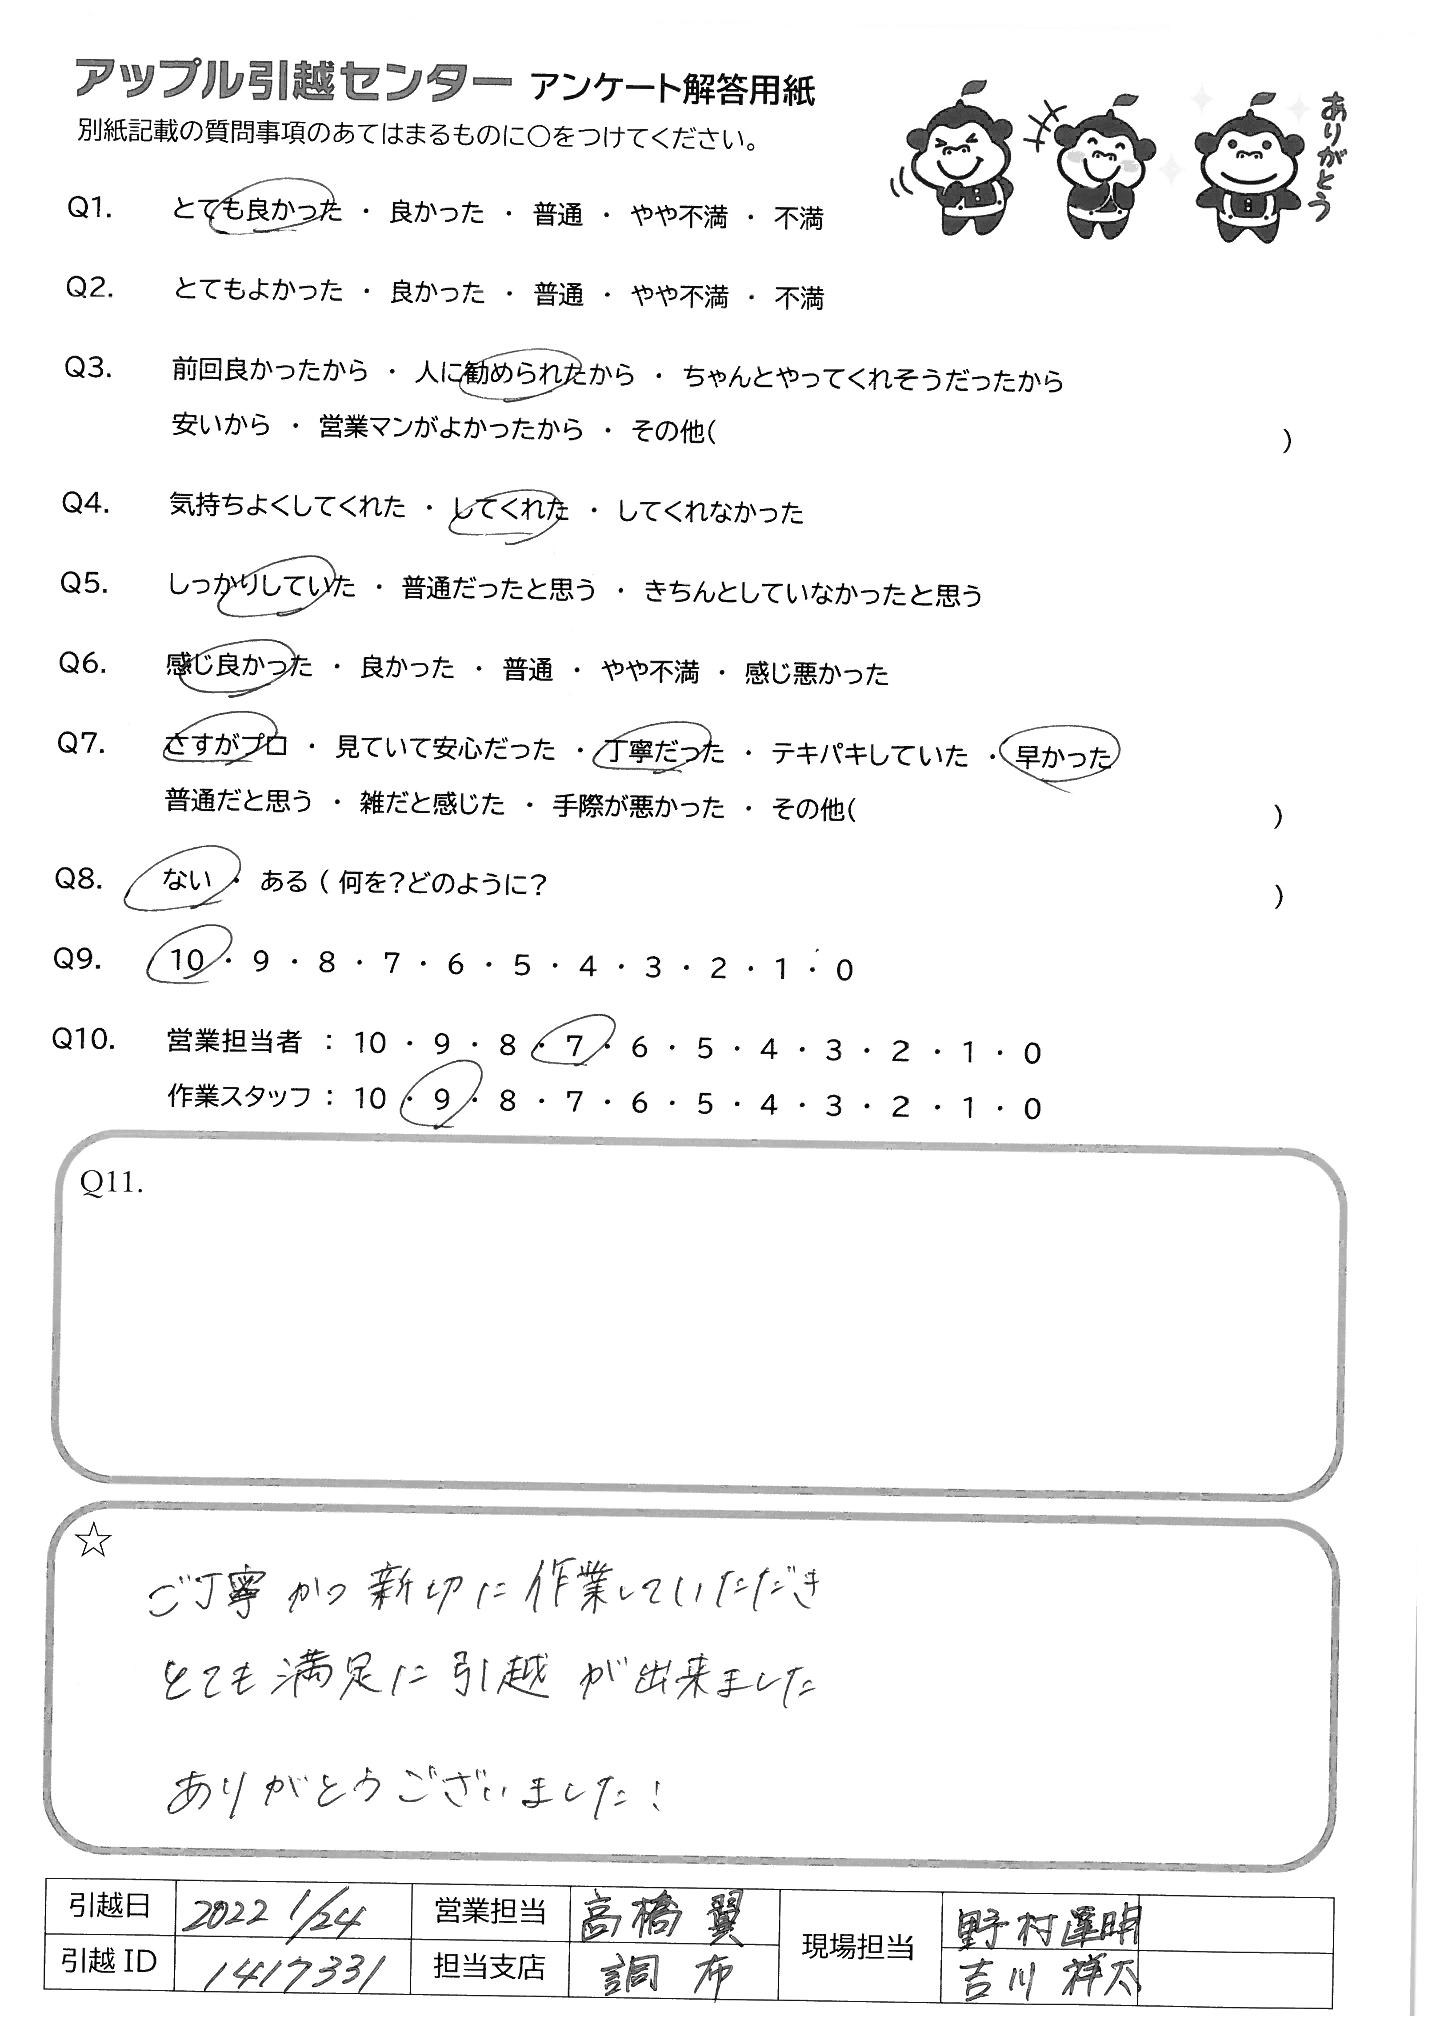 アップル引越センター アンケート解答用紙
別紙記載の質問事項のあてはまるものに〇をつけてください。
ありがとう
Q1. とても良かった ・ 良かった ・ 普通 ・ やや不満 ・ 不満
Q2. とてもよかった ・ 良かった ・ 普通 ・ やや不満 ・ 不満
Q3. 前回良かったから ・ 人に勧められたから ・ ちゃんとやってくれそうだったから
安いから ・ 営業マンがよかったから ・ その他( )
Q4. 気持ちよくしてくれた ・ してくれた ・ してくれなかった
Q5. しっかりしていた ・ 普通だったと思う ・ きちんとしていなかったと思う
Q6. 感じ良かった ・ 良かった ・ 普通 ・ やや不満 ・ 感じ悪かった
Q7. さすがプロ ・ 見ていて安心だった ・ 丁寧だった ・ テキパキしていた ・ 早かった
普通だと思う ・ 雑だと感じた ・ 手際が悪かった ・ その他( )
Q8. ない ・ ある ( 何を?どのように? )
Q9. 10 ・ 9 ・ 8 ・ 7 ・ 6 ・ 5 ・ 4 ・ 3 ・ 2 ・ 1 ・ 0
Q10. 営業担当者 : 10 ・ 9 ・ 8 ・ 7 ・ 6 ・ 5 ・ 4 ・ 3 ・ 2 ・ 1 ・ 0
作業スタッフ : 10 ・ 9 ・ 8 ・ 7 ・ 6 ・ 5 ・ 4 ・ 3 ・ 2 ・ 1 ・ 0
Q11.
☆
ご丁寧かつ新切に作業していただき
とても満足に引越が出来ました
ありがとうございました!
引越日 2022 1/24 営業担当 高橋 翼 現場担当 野村運明
引越 ID 1417331 担当支店 調布 吉川 祥太